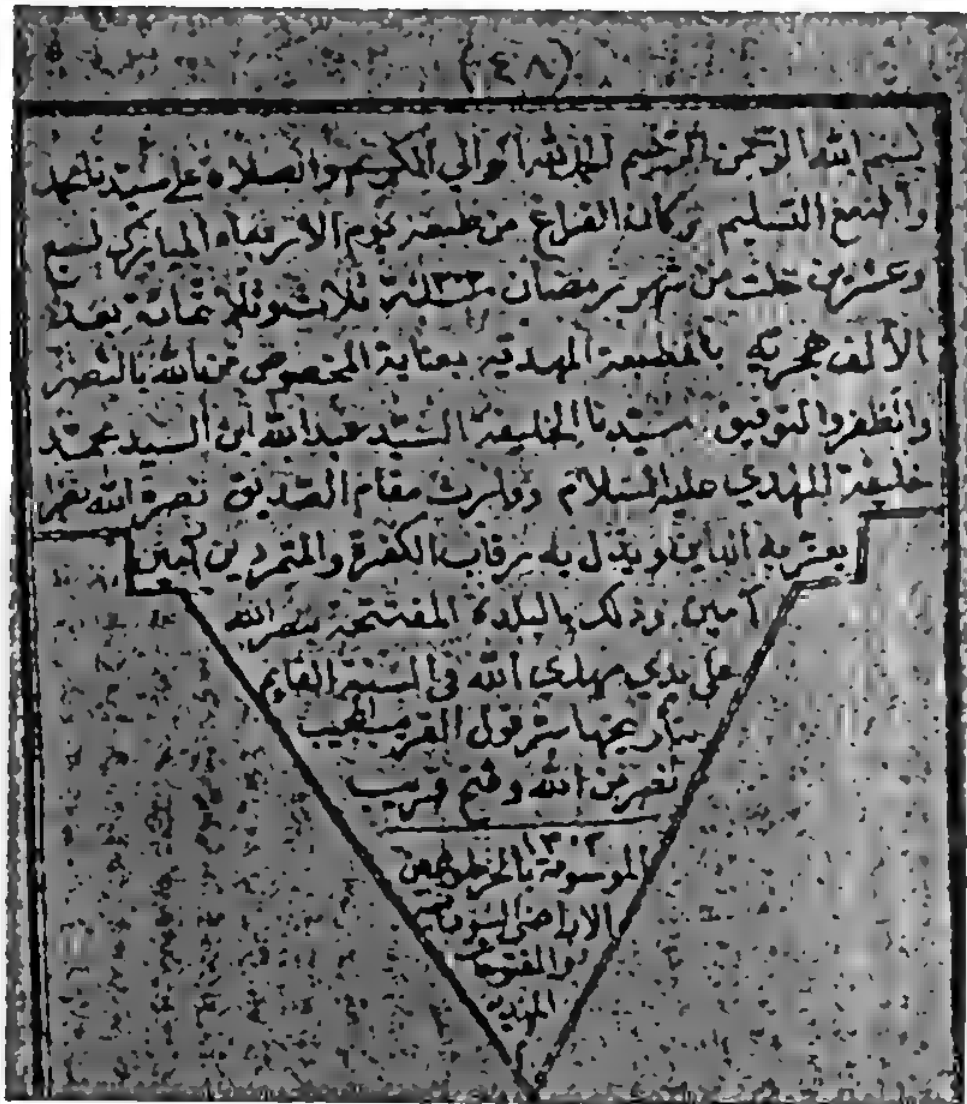 (٤٨)
بسم الله الرحمن الرحيم الحمد لله الوالي الكريم والصلاة على سيدنا محمد
وآله مع التسليم وكان الفراغ من طبعه يوم الاربعاء المبارك لسبع
وعشرين خلت من شهر رمضان سنة ١٣٠٣ ثلاث وثلاثمائة بعد
الألف هجريه بالمطبعة المهدية بعناية المخصوص من الله بالنصر
والظفر والتوفيق سيدنا الخليفة السيد عبد الله ابن السيد محمد
خليفة المهدي عليه السلام ووارث مقام الصديق نصره الله نصرا
يعز به الدين ويذل به رقاب الكفرة والمتمردين آمين
آمين وذلك بالبلدة المفتتحة بنصر الله
على يدي مهدي الله في السنة القايم
بتاريخها سر قول القريب المجيب
نصر من الله وفتح قريب
١٣٠٢
الموسومة بالخرطوم من
الاراضي السودانية
والفتوحات
المهدية